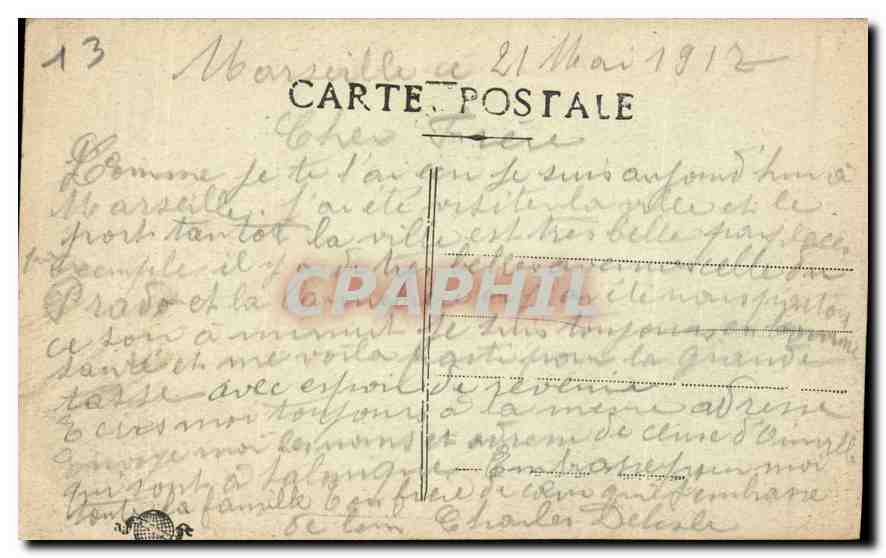 13 Marseille le 21 Mai 1917
CARTE POSTALE
Cher Frère
Comme je te l'ai je suis aujourd'hui à
Marseille. j'ai été visiter la ville et le
port tantôt la ville est très belle par places
exemple il y a de très belles avenues celle du
Prado et la
ce soir à minuit je suis toujours en bonne
santé et me voilà parti pour la grande
tasse avec espoir de revenir
Ecris moi toujours à la même adresse
Envoye moi les noms et adresse de ceux
qui sont à Salonique Embrasse pour moi
toute la famille Ton frère de cœur qui t'embrasse
de loin Charles Delisle
CPAPHIL